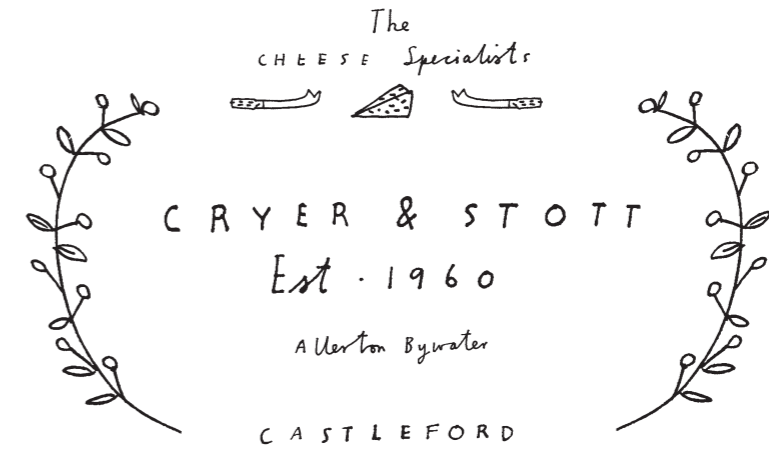 The
CHEESE Specialists
CRYER & STOTT
Est · 1960
Allerton Bywater
CASTLEFORD